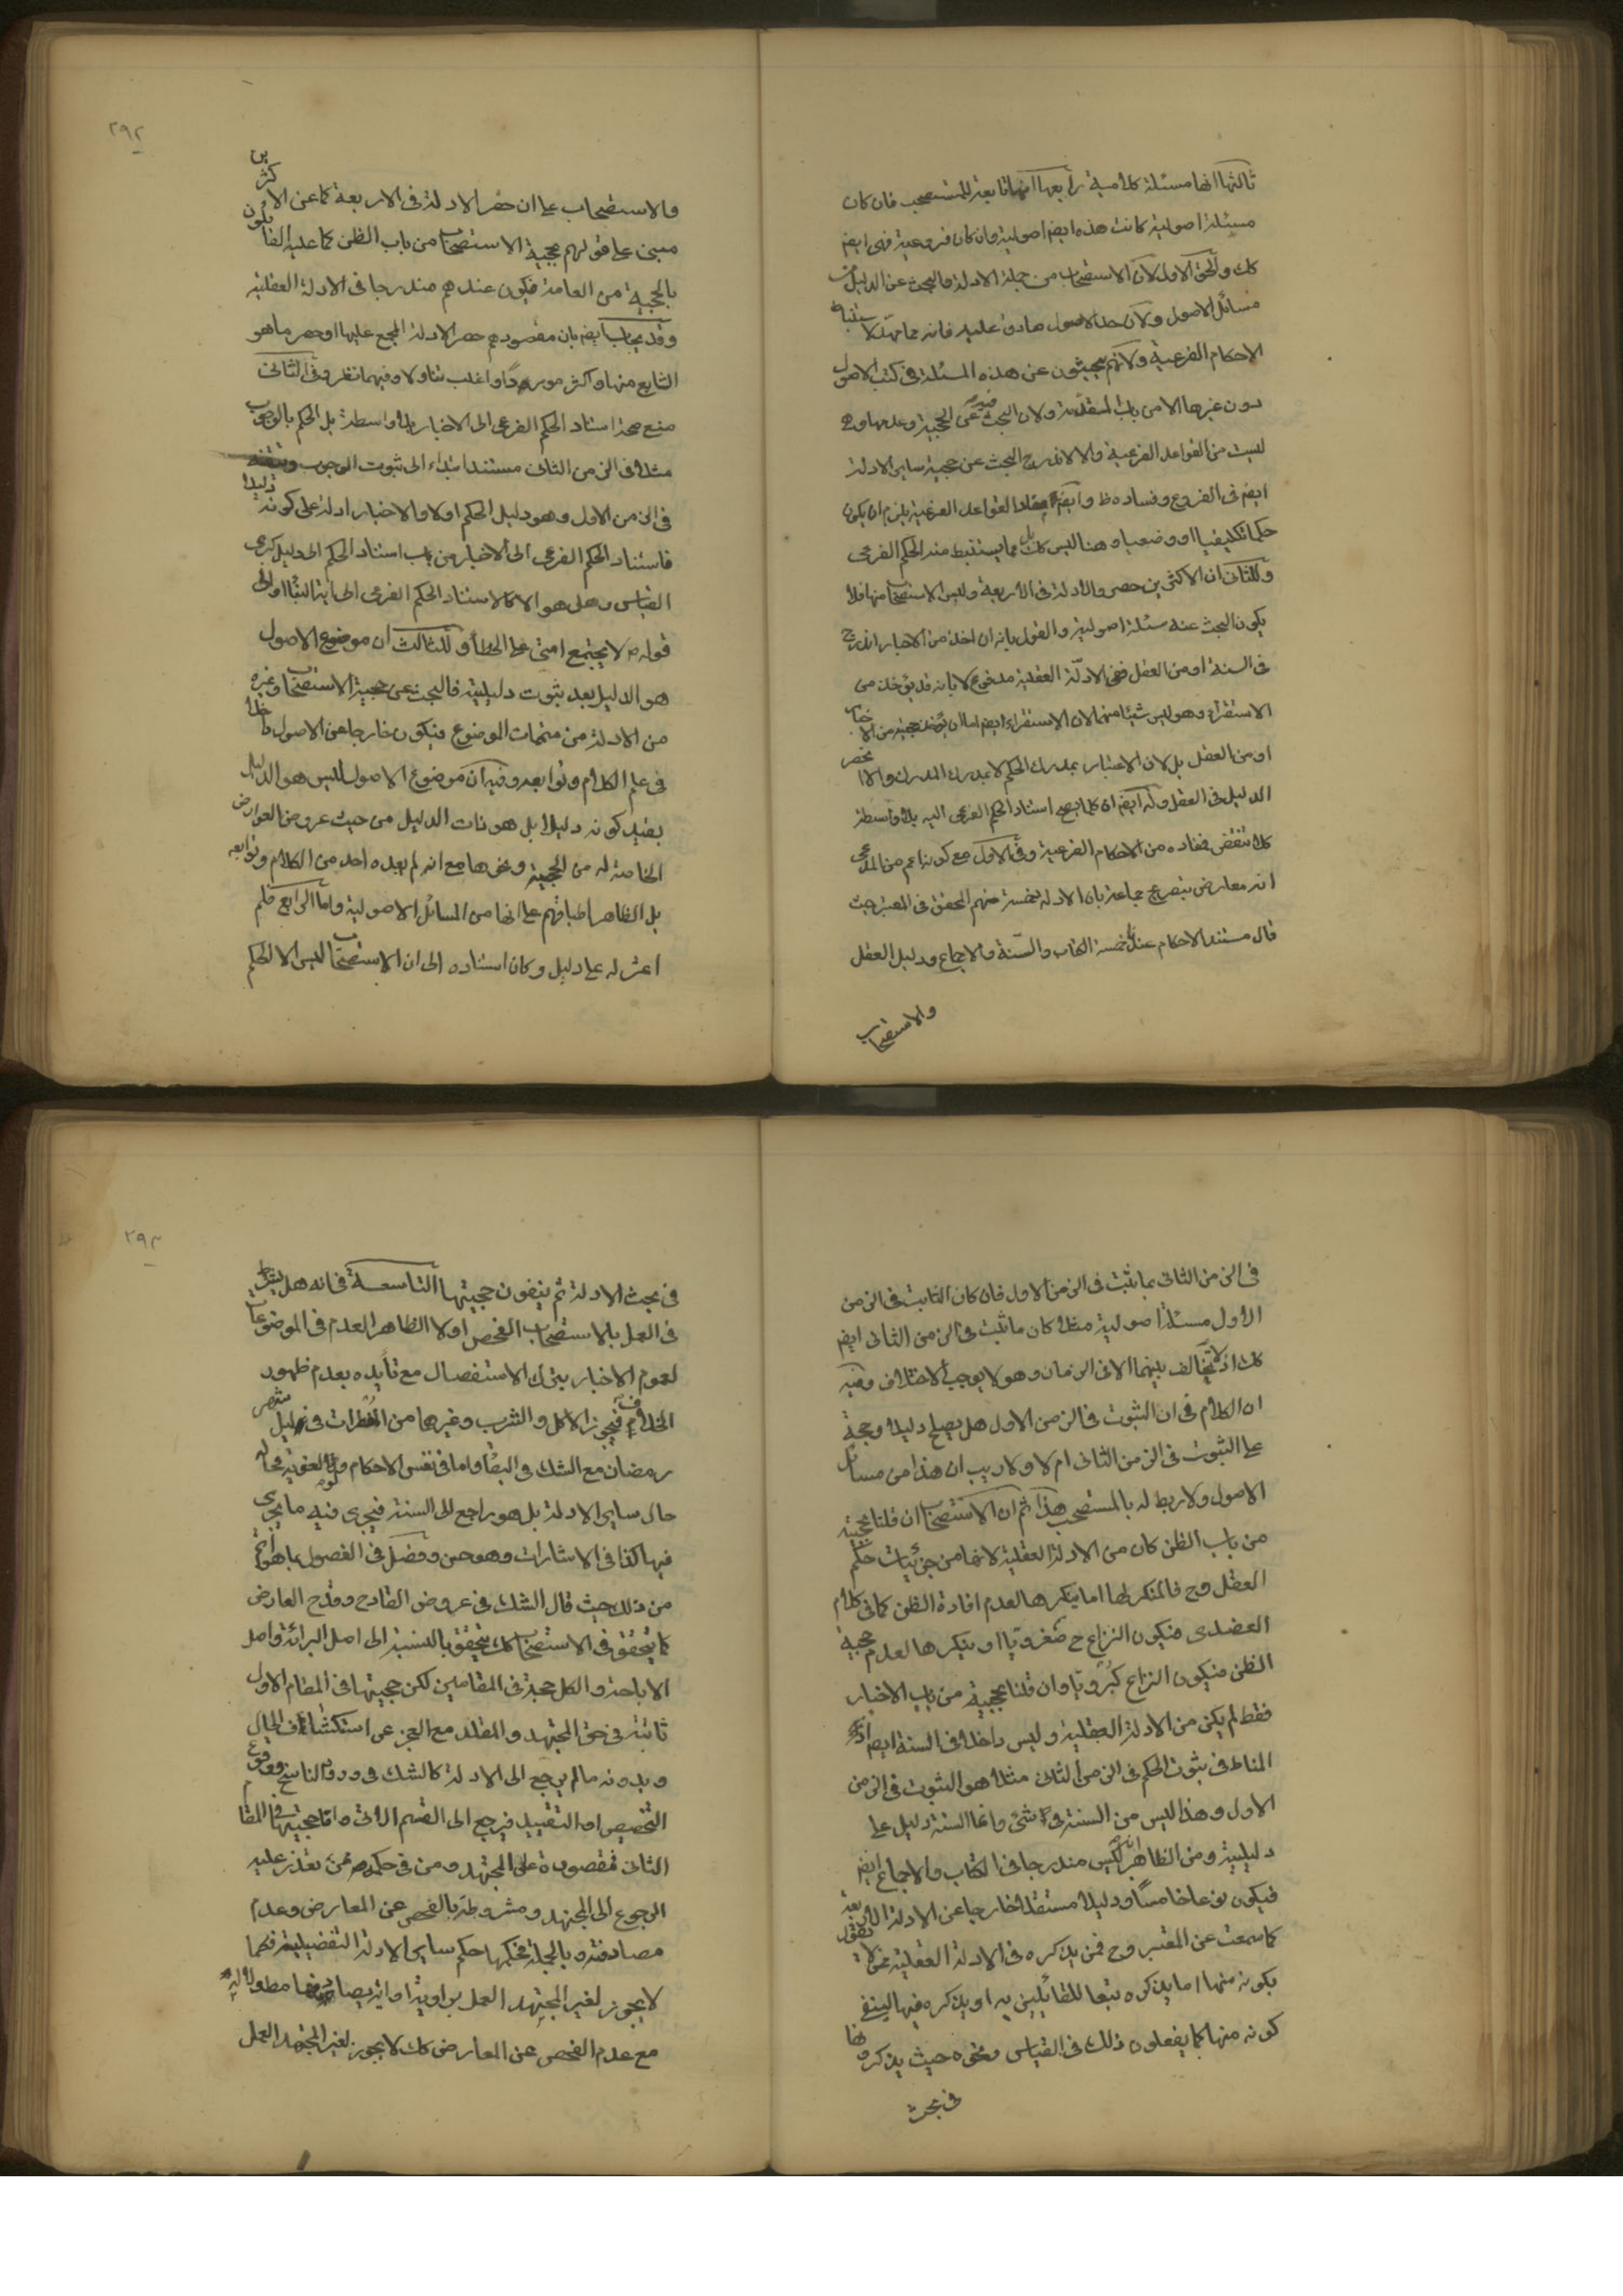 ثالثها انها مسئلة كلامية رابعها انها تابعة للمستصحب فان كان
مسئلة اصولية كانت هذه ايضا اصولية وان كان فروعية فهى ايضا
كك والحق الاول لان الاستصحاب من جملة الادلة والبحث عن الدليل من
مسائل الاصول ولان حد الاصول صادق عليه فانه مما مهد لاستنباط
الاحكام الفرعية ولانهم يبحثون عن هذه المسئلة فى كتب الاصول
دون غيرها الا من باب المقدمة ولان البحث فيه عن الحجية وعدمها وهى
ليست من القواعد الفرعية والا لاندرج البحث عن حجية ساير الادلة
ايضا فى الفروع وفساده ظ وايضا مفاد القواعد الفرعية يلزم ان يكون
حكما تكليفيا او وضعيا وهنا ليس كك بل مما يستنبط منه الحكم الفرعى
وللثانى ان الاكثرين حصروا الادلة فى الاربعة وليس الاستصحاب منها فلا
يكون البحث عنه مسئلة اصولية والقول بانه ان اخذ من الاخبار اندرج
فى السنة او من العقل ففى الادلة العقلية مدفوع لا بانه قد يؤخذ من
الاستقراء وهو ليس شيئا منهما لان الاستقراء ايضا اما ان يؤخذ حجيته من الاخبار
او من العقل بل لان الاعتبار بمدرك الحكم لا بمدرك المدرك والا انحصر
الدليل فى العقل وله ايضا ان كلما يصح استناد الحكم الفرعى اليه بلا واسطة
كلا تنقض مفاده من الاحكام الفرعية وفى الاول مع كونه اعم من المدعى
انه معارض بتصريح جماعة بان الادلة خمسة منهم المحقق فى المعتبر حيث
قال مستند الاحكام عندنا خمسة الكتاب والسنة والاجماع ودليل العقل
والاستصحاب
٢٩٢
والاستصحاب على ان حصر الادلة فى الاربعة كما عن الاكثرين
مبنى على قولهم بحجية الاستصحاب من باب الظن كما عليه القائلون
بالحجية من العامة فيكون عندهم مندرجا فى الادلة العقلية
وقد يجاب ايضا بان مقصودهم حصر الادلة المجمع عليها او حصر ما هو
الشايع منها واكثر موردا واغلب تناولا وفيهما نظر وفى الثانى
منع صحة استناد الحكم الفرعى الى الاخبار بلا واسطة بل الحكم بالوجوب
مثلا فى الزمن الثانى مستند ابتداء الى ثبوت الوجوب
فى الزمن الاول وهو دليل الحكم اولا والاخبار ادلة على كونه دليلا
فاستناد الحكم الفرعى الى الاخبار من باب استناد الحكم الى دليل كبرى
القياس وهل هو الا كاستناد الحكم الفرعى الى اية النبأ او الى
قوله ص لا يجتمع امتى على الخطأ وللثالث ان موضوع الاصول
هو الدليل بعد ثبوت دليليته فالبحث عن حجية الاستصحاب وغيره
من الادلة من متممات الموضوع فيكون خارجا عن الاصول داخلا
فى علم الكلام وتوابعه وفيه ان موضوع الاصول ليس هو الدليل
بقيد كونه دليلا بل هو ذات الدليل من حيث عروض العوارض
الخاصة له من الحجية ونحوها مع انه لم يعده احد من الكلام وتوابعه
بل الظاهر اطباقهم على انها من المسائل الاصولية واما الرابع فلم
اعثر له على دليل وكان استناده الى ان الاستصحاب ليس الا الحكم
فى الزمن الثانى بما ثبت فى الزمن الاول فان كان الثابت فى الزمن
الاول مسئلة اصولية مثلا كان ما ثبت فى الزمن الثانى ايضا
كك اذ لا تخالف بينهما الا فى الزمان وهو لا يوجب الاختلاف وفيه
ان الكلام فى ان الثبوت فى الزمن الاول هل يصلح دليلا وحجة
على الثبوت فى الزمن الثانى ام لا ولا ريب ان هذا من مسائل
الاصول ولا ربط له بالمستصحب هذا ثم ان الاستصحاب ان قلنا بحجيته
من باب الظن كان من الادلة العقلية لانها من جزئيات حكم
العقل وح فالمنكر لها اما ينكرها لعدم افادة الظن كما فى كلام
العضدى فيكون النزاع ح صغرويا او ينكرها لعدم حجية
الظن فيكون النزاع كبرويا وان قلنا بحجيته من باب الاخبار
فقط لم يكن من الادلة العقلية وليس داخلا فى السنة ايضا اذ
المناط فى ثبوت الحكم فى الزمن الثانى مثلا هو الثبوت فى الزمن
الاول وهذا ليس من السنة فى شئ وانما السنة دليل على
دليليته ومن الظاهر انه ليس مندرجا فى الكتاب والاجماع ايضا
فيكون نوعا خامسا ودليلا مستقلا خارجا عن الادلة الاربعة
كما سمعت عن المعتبر وح فمن يذكره فى الادلة العقلية ممن لا يقول
بكونه منها اما يذكره تبعا للقائلين به او يذكره فيها لينفى
كونه منها كما يفعلون ذلك فى القياس ونحوه حيث يذكرونها
فى بحث
٢٩٣
فى بحث الادلة ثم ينفون حجيتها التاسعة فى انه هل يشترط
فى العمل بالاستصحاب الفحص اولا الظاهر العدم فى الموضوعات
لعموم الاخبار بترك الاستفصال مع تأيده بعدم ظهور
الخلاف فيجوز الاكل والشرب وغيرها من المفطرات فى ليل شهر
رمضان مع الشك فى البقاء واما فى نفس الاحكام فحاله
حال ساير الادلة بل هو راجع الى السنة فيجرى فيه ما يجرى
فيها كذا فى الاشارات وهو حسن وفصل فى الفصول بما هو اتم
من ذلك حيث قال الشك فى عروض القادح وقدح العارض
كما يتحقق فى الاستصحاب كك يتحقق بالنسبة الى اصل البرائة واصل
الاباحة والكل حجة فى المقامين لكن حجيتها فى المقام الاول
ثابتة فى حق المجتهد والمقلد مع العجز عن استكشاف الحال
وبدونه ما لم يرجع الى الادلة كالشك فى ورود الناسخ ووقوع
التخصيص او التقييد فيرجع الى القسم الاتى واما حجيتها فى المقام
الثانى فمقصورة على المجتهد ومن فى حكمه ممن تعذر عليه
الرجوع الى المجتهد ومشروطة بالفحص عن المعارض وعدم
مصادفته وبالجملة فحكمها حكم ساير الادلة التفصيلية فكما
لا يجوز لغير المجتهد العمل برواية او اية
مع عدم الفحص عن المعارض كك لا يجوز لغير المجتهد العمل